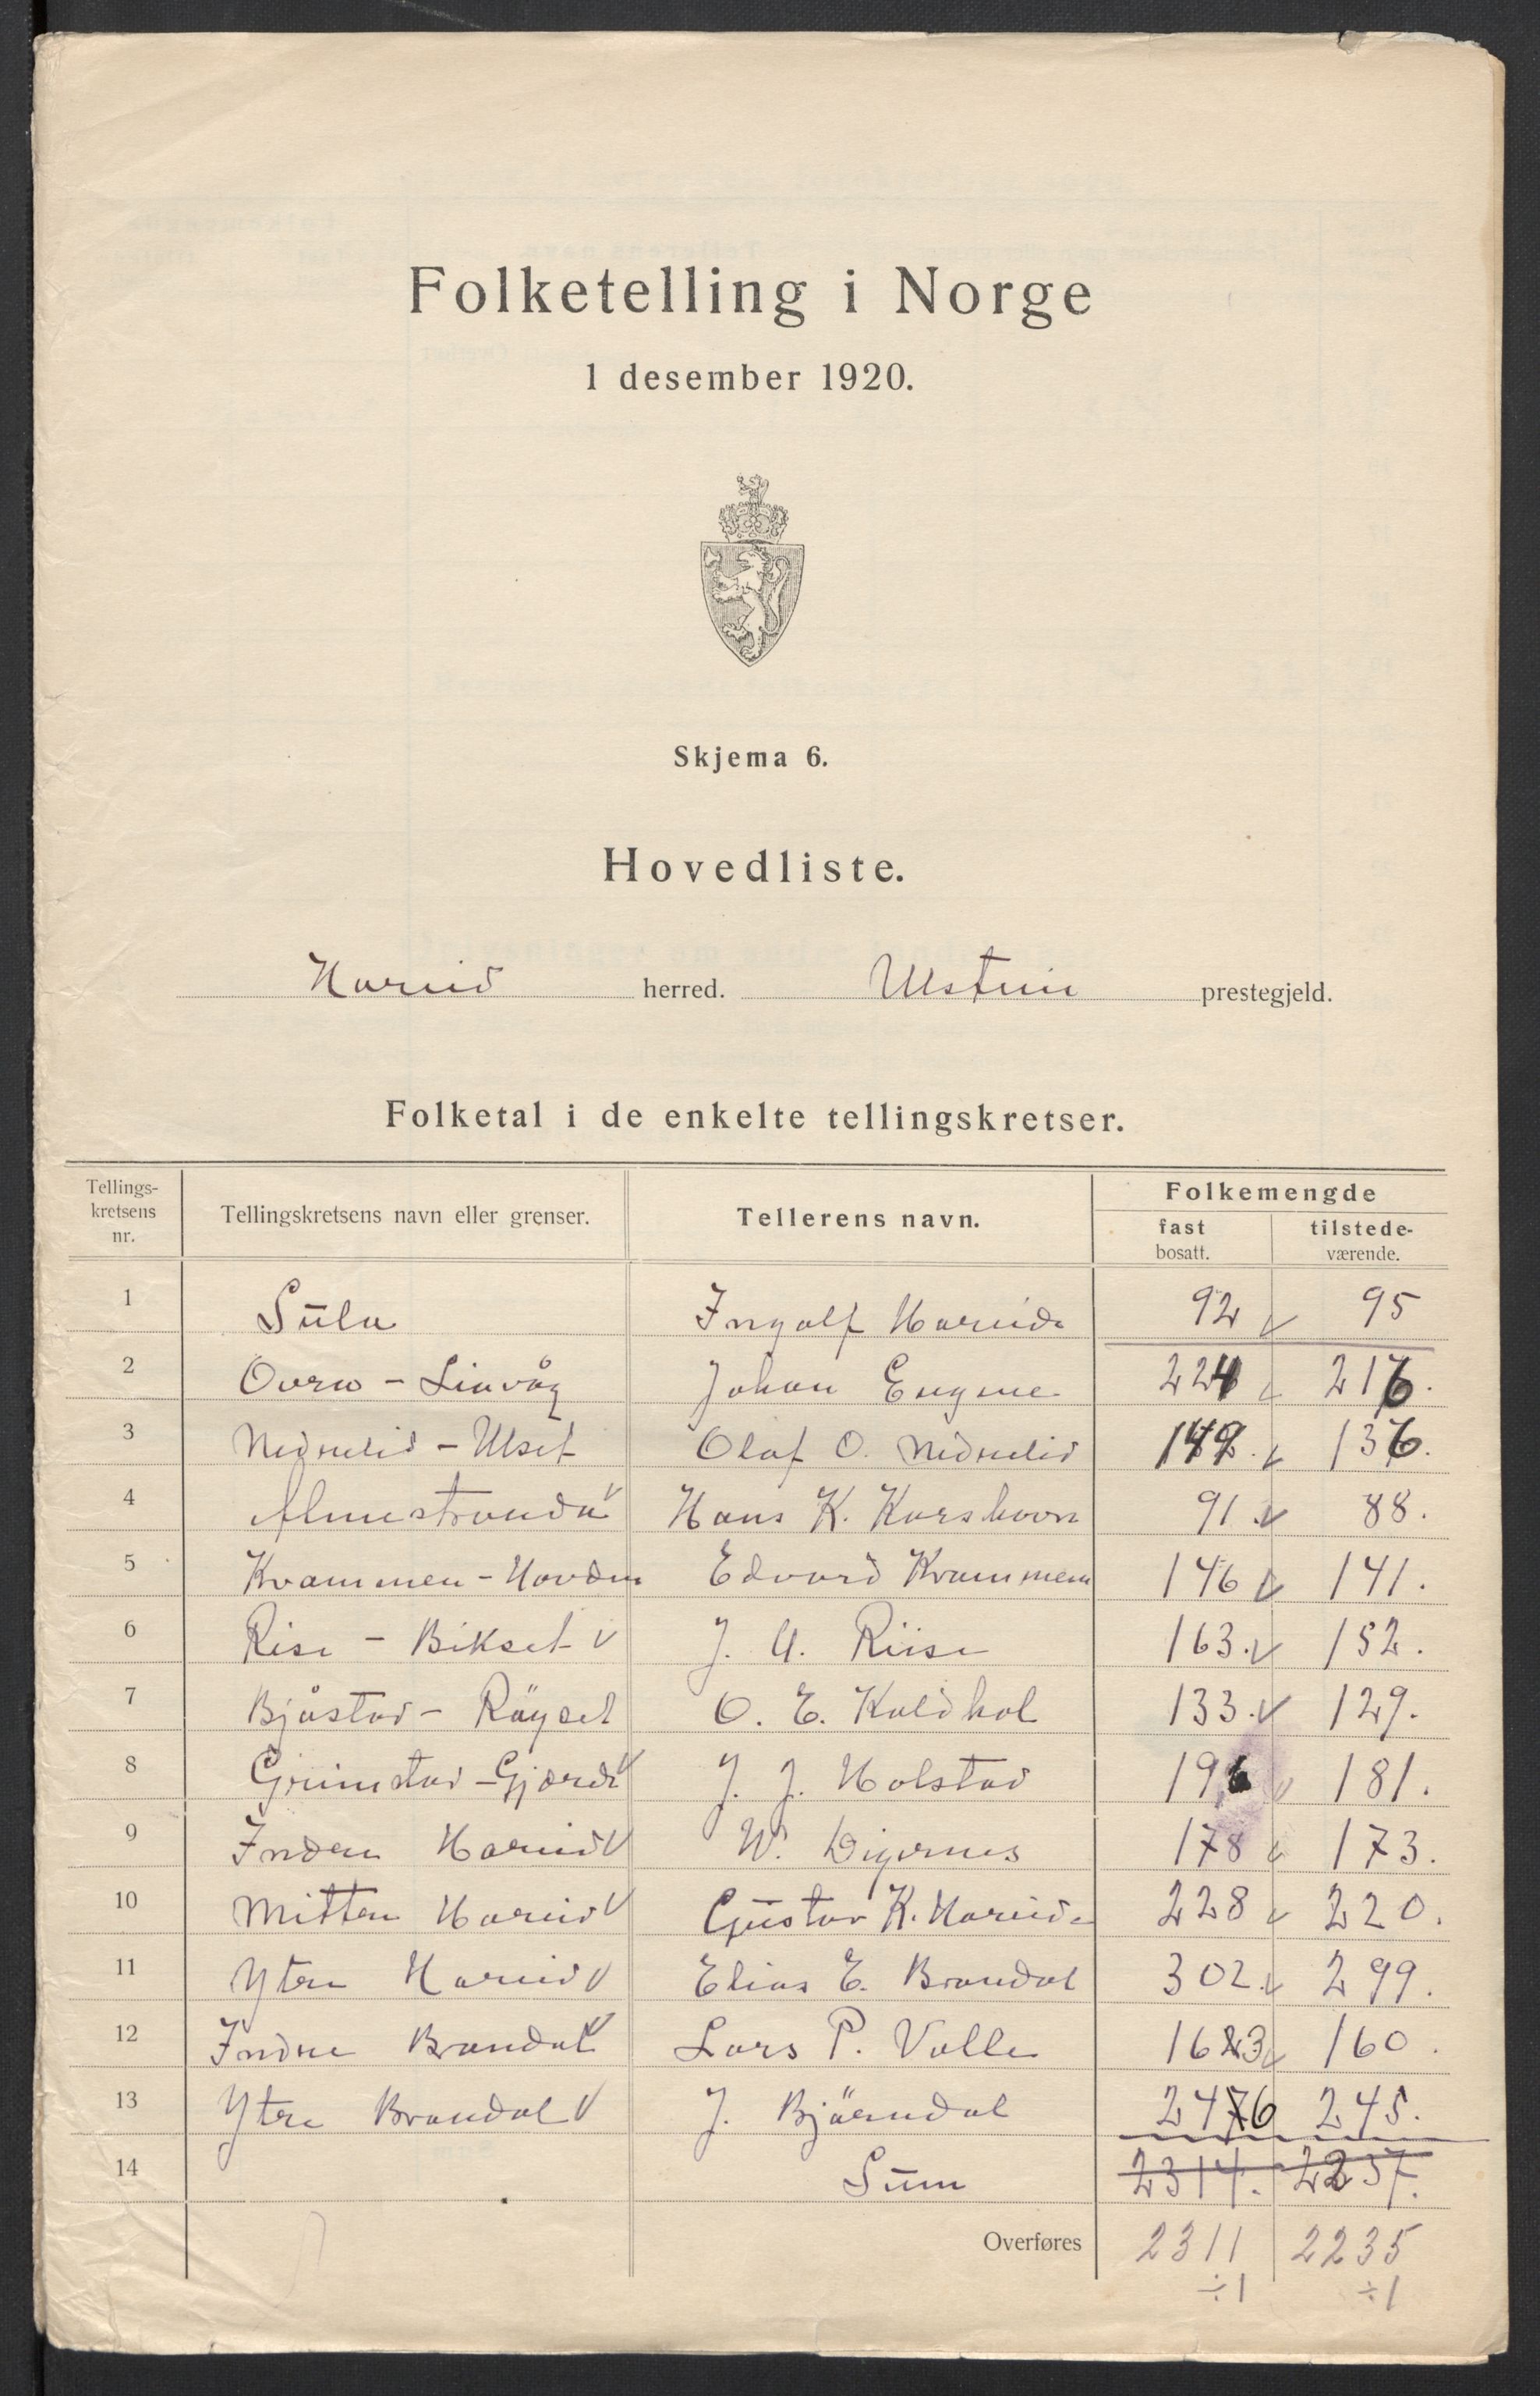 Folketelling i Norge
1 desember 1920.
Skjema 6.
Hovedliste.
Hareid herred. Ulstein prestegjeld.
Folketal i de enkelte tellingskretser.
Tellings-kretsens nr. Tellingskretsens navn eller grenser. Tellerens navn. Folkemengde
fast bosatt. tilstede-værende.
1 Sula Ingolf Hareide 92 95
2 Overå - Liavåg Johan 224 216.
3 Nedrelid - Ulset Olaf O. Nedrelid 136.
4 Almestranda Hans K. Korshavn 91 88.
5 Kvammen - Hovden Edvard Kvammen 146 141.
6 Rise - Bikset J. A. Riise 163. 152.
7 Bjåstad - Röyset O. E. Koldhol 133. 129.
8 Grimstad - Gjerde J. J. Holstad 196 181.
9 Indre Hareid W. Digernes 178 173.
10 Mittre Hareid Gustav K. Hareide 228 220.
11 Ytre Hareid Elias E. Brandal 302. 299.
12 Indre Brandal Lars P. Valle 163 160.
13 Ytre Brandal J. Björndal 246 245.
14 Sum 2314. 2237.
Overføres 2311 2235
÷1 ÷1